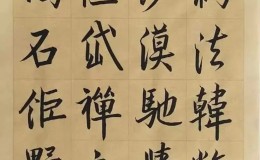 約法韓弊
沙漠馳
恒岱禪主
碣石鉅野